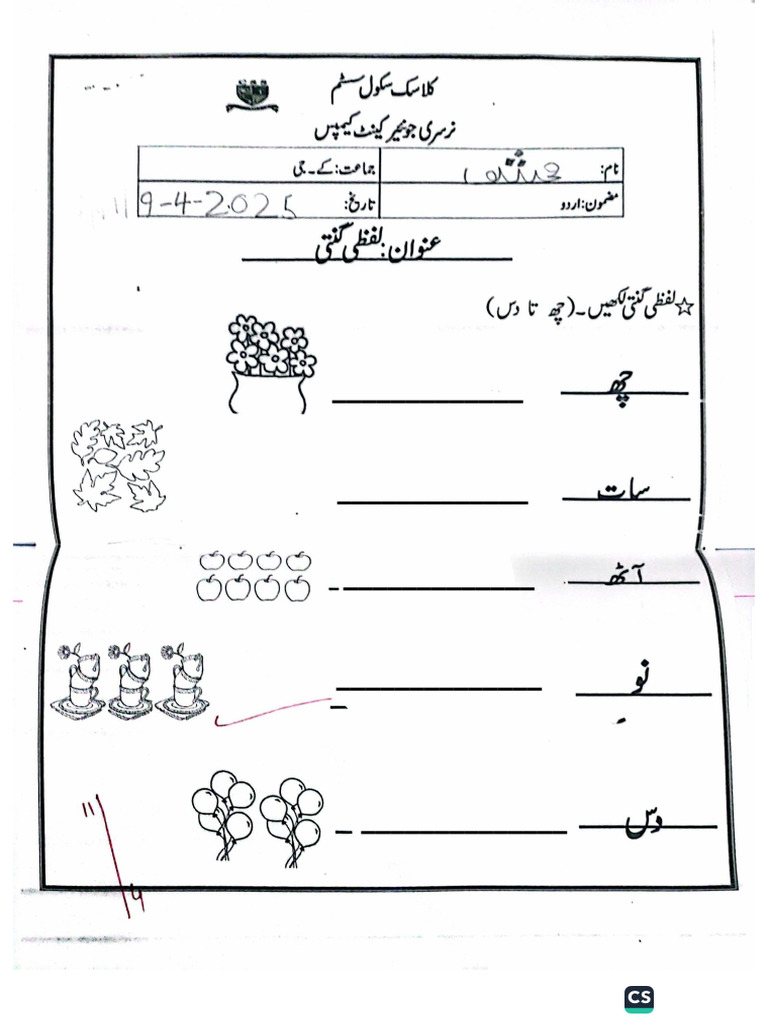 کلاسک سکول سسٹم
نرسری جونیئر کینٹ کیمپس
نام:
جماعت: کے۔جی
مضمون: اردو
تاریخ: 9-4-2025
عنوان: لفظی گنتی
☆ لفظی گنتی لکھیں۔ (چھ تا دس)
چھ
سات
آٹھ
نو
دس
11/4
CS